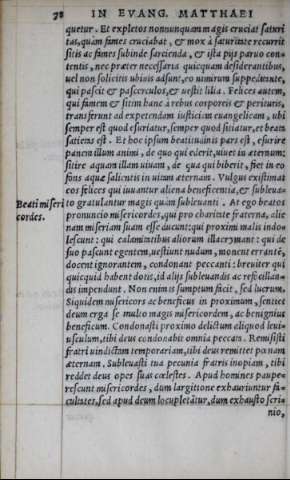 78 IN EVANG. MATTHAEI
quetur. Et expletos nonnunquam magis cruciat saturi
tas, quàm fames cruciabat, & mox à saturitate recurrit
sitis ac fames subinde sarcienda, & ista pijs paruo con-
tentis, nec præter necessaria quicquam desiderantibus,
uel non solicitis ubiuis adsunt, eo nimirum suppeditante,
qui pascit & passerculos, & uestit lilia. Felices autem,
qui famem & sitim hanc à rebus corporeis & perituris,
transferunt ad expetendam iusticiam euangelicam, ubi
semper est quod esuriatur, semper quod sitiatur, et beata
satietas est. Et hoc ipsum beatitudinis pars est, esurire
panem illum animi, de quo qui ederit, uiuet in æternum:
sitire aquam illam uiuam, de qua qui biberit, fiet in eo
fons aquæ salientis in uitam æternam. Vulgus existimat
eos felices qui iuuantur aliena beneficentia, & subleua-
Beati miseri to gratulantur magis quàm subleuanti. At ego beatos
cordes. pronuncio misericordes, qui pro charitate fraterna, alie
nam miseriam suam esse ducunt: qui proximi malis indo-
lescunt: qui calamitatibus aliorum illacrymant: qui de
suo pascunt egentem, uestiunt nudum, monent errantē,
docent ignorantem, condonant peccanti: breuiter qui
quicquid habent dotis, id alijs subleuandis ac refocillan-
dis impendunt. Non enim is sumptum facit, sed lucrum.
Siquidem misericors ac beneficus in proximum, sentiet
deum erga se multo magis misericordem, ac benignius
beneficum. Condonasti proximo delictum aliquod leui-
usculum, tibi deus condonabit omnia peccata. Remisisti
fratri uindictam temporariam, tibi deus remittet pœnam
æternam. Subleuasti tua pecunia fratris inopiam, tibi
reddet deus opes suas cœlestes. Apud homines paupe-
rescunt misericordes, dum largitione exhauriuntur fa-
cultates, sed apud deum locupletātur, dum exhausto scri-
nio,